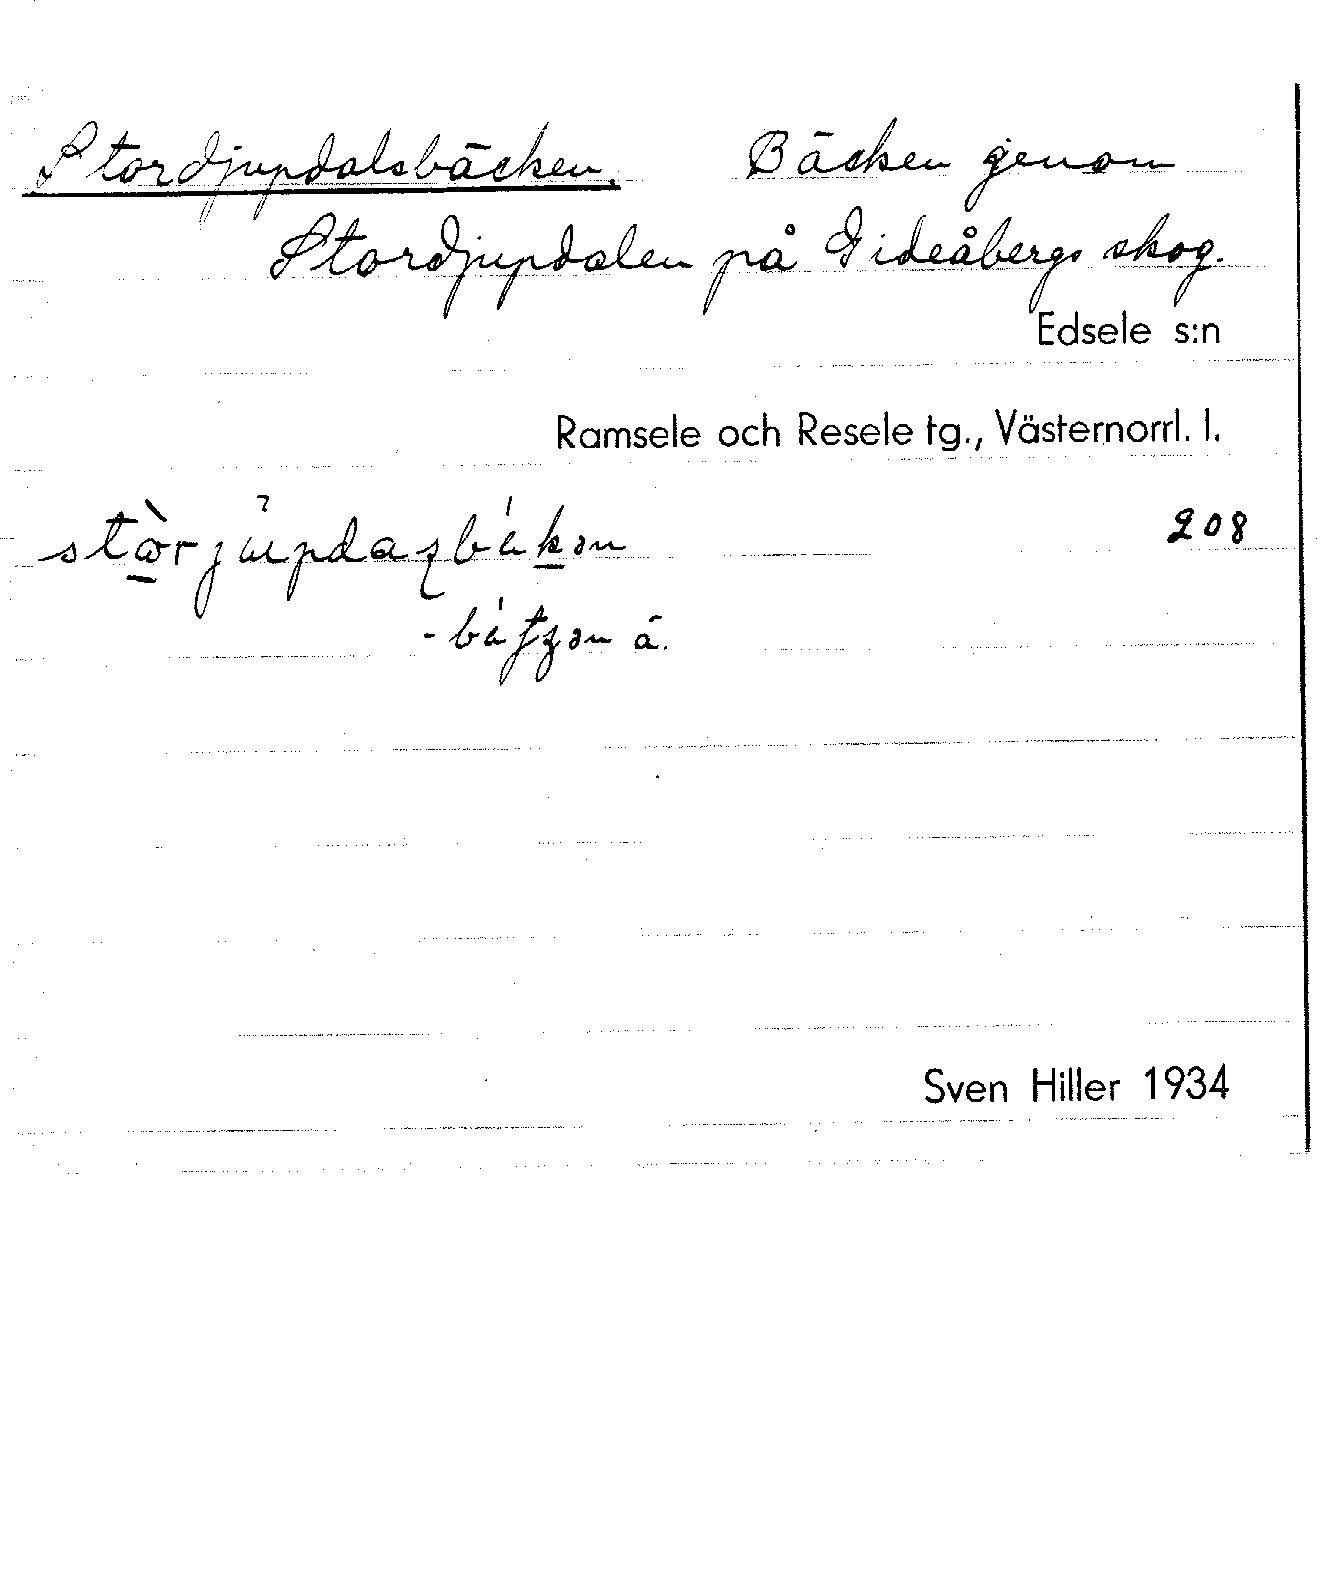 Stordjupdalsbäcken. Bäcken genom
Stordjupdalen på Gideåbergs skog.
Edsele s:n
Ramsele och Resele tg., Västernorrl. l.
208
ä.
Sven Hiller 1934